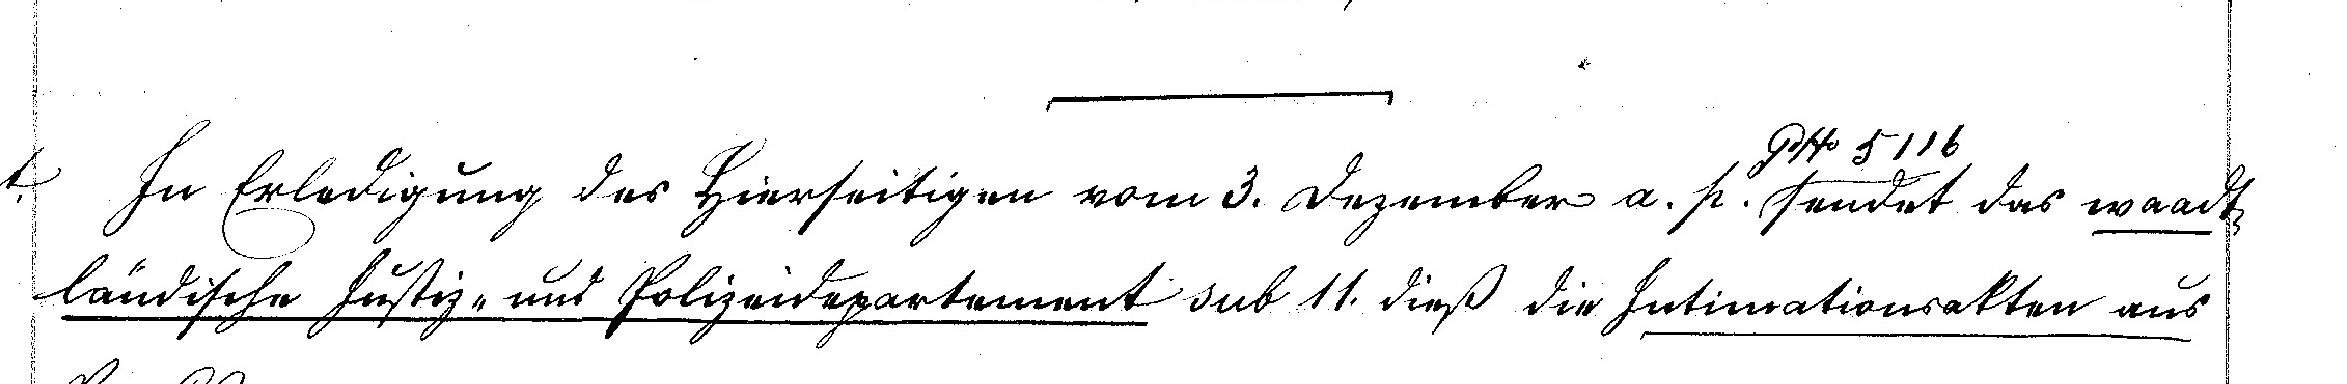 5116
t. In Erledigung des Hierseitigen vom 3. Dezember a. p. sendet das waadt-
ländische Justiz- und Polizeidepartement sub 11. dieß die Intimationsakten aus